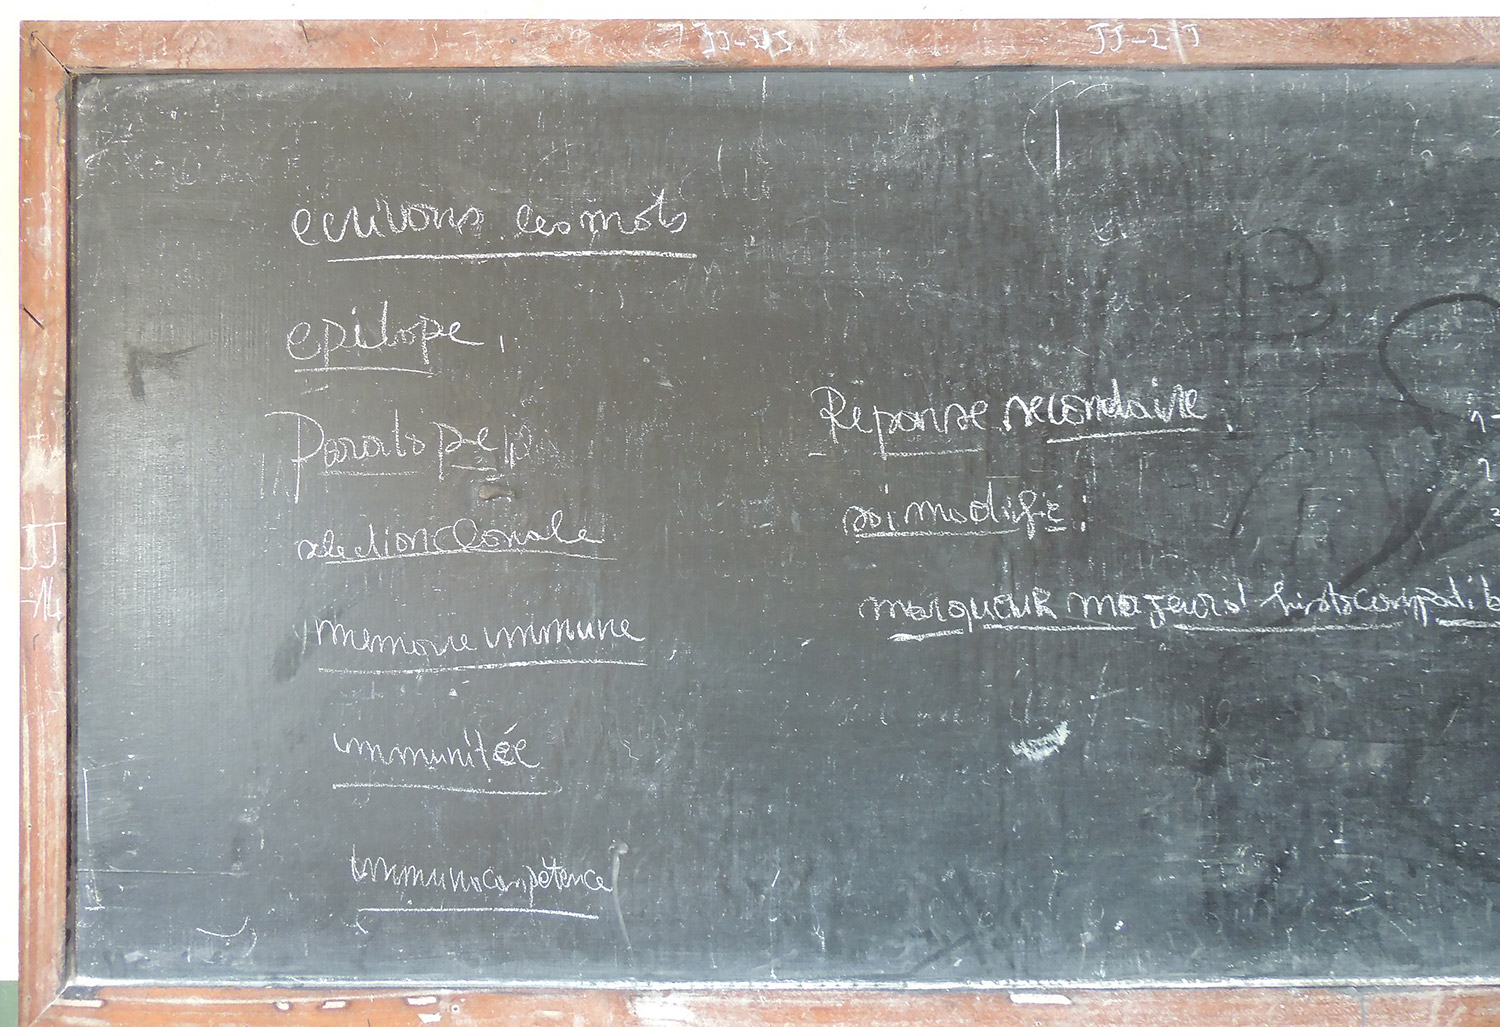 JJ-2/J
JJ-2/J
ecrivons les mots
epitope,
Paratope
selection clonale
memoire immune
immunitée
immunocompétence
JJ
-14
Réponse secondaire :
soi modifié :
marqueur majeur d'histocompatib
1-